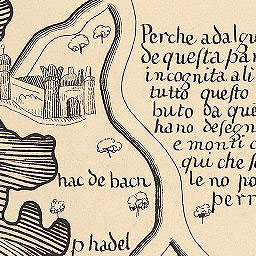 Perche ad alqu
de questa par
incognita ali
tutto questo
buto da que
hano desegn
e monti c
qui che se
le no po
perr
hac de bacn
p hadel